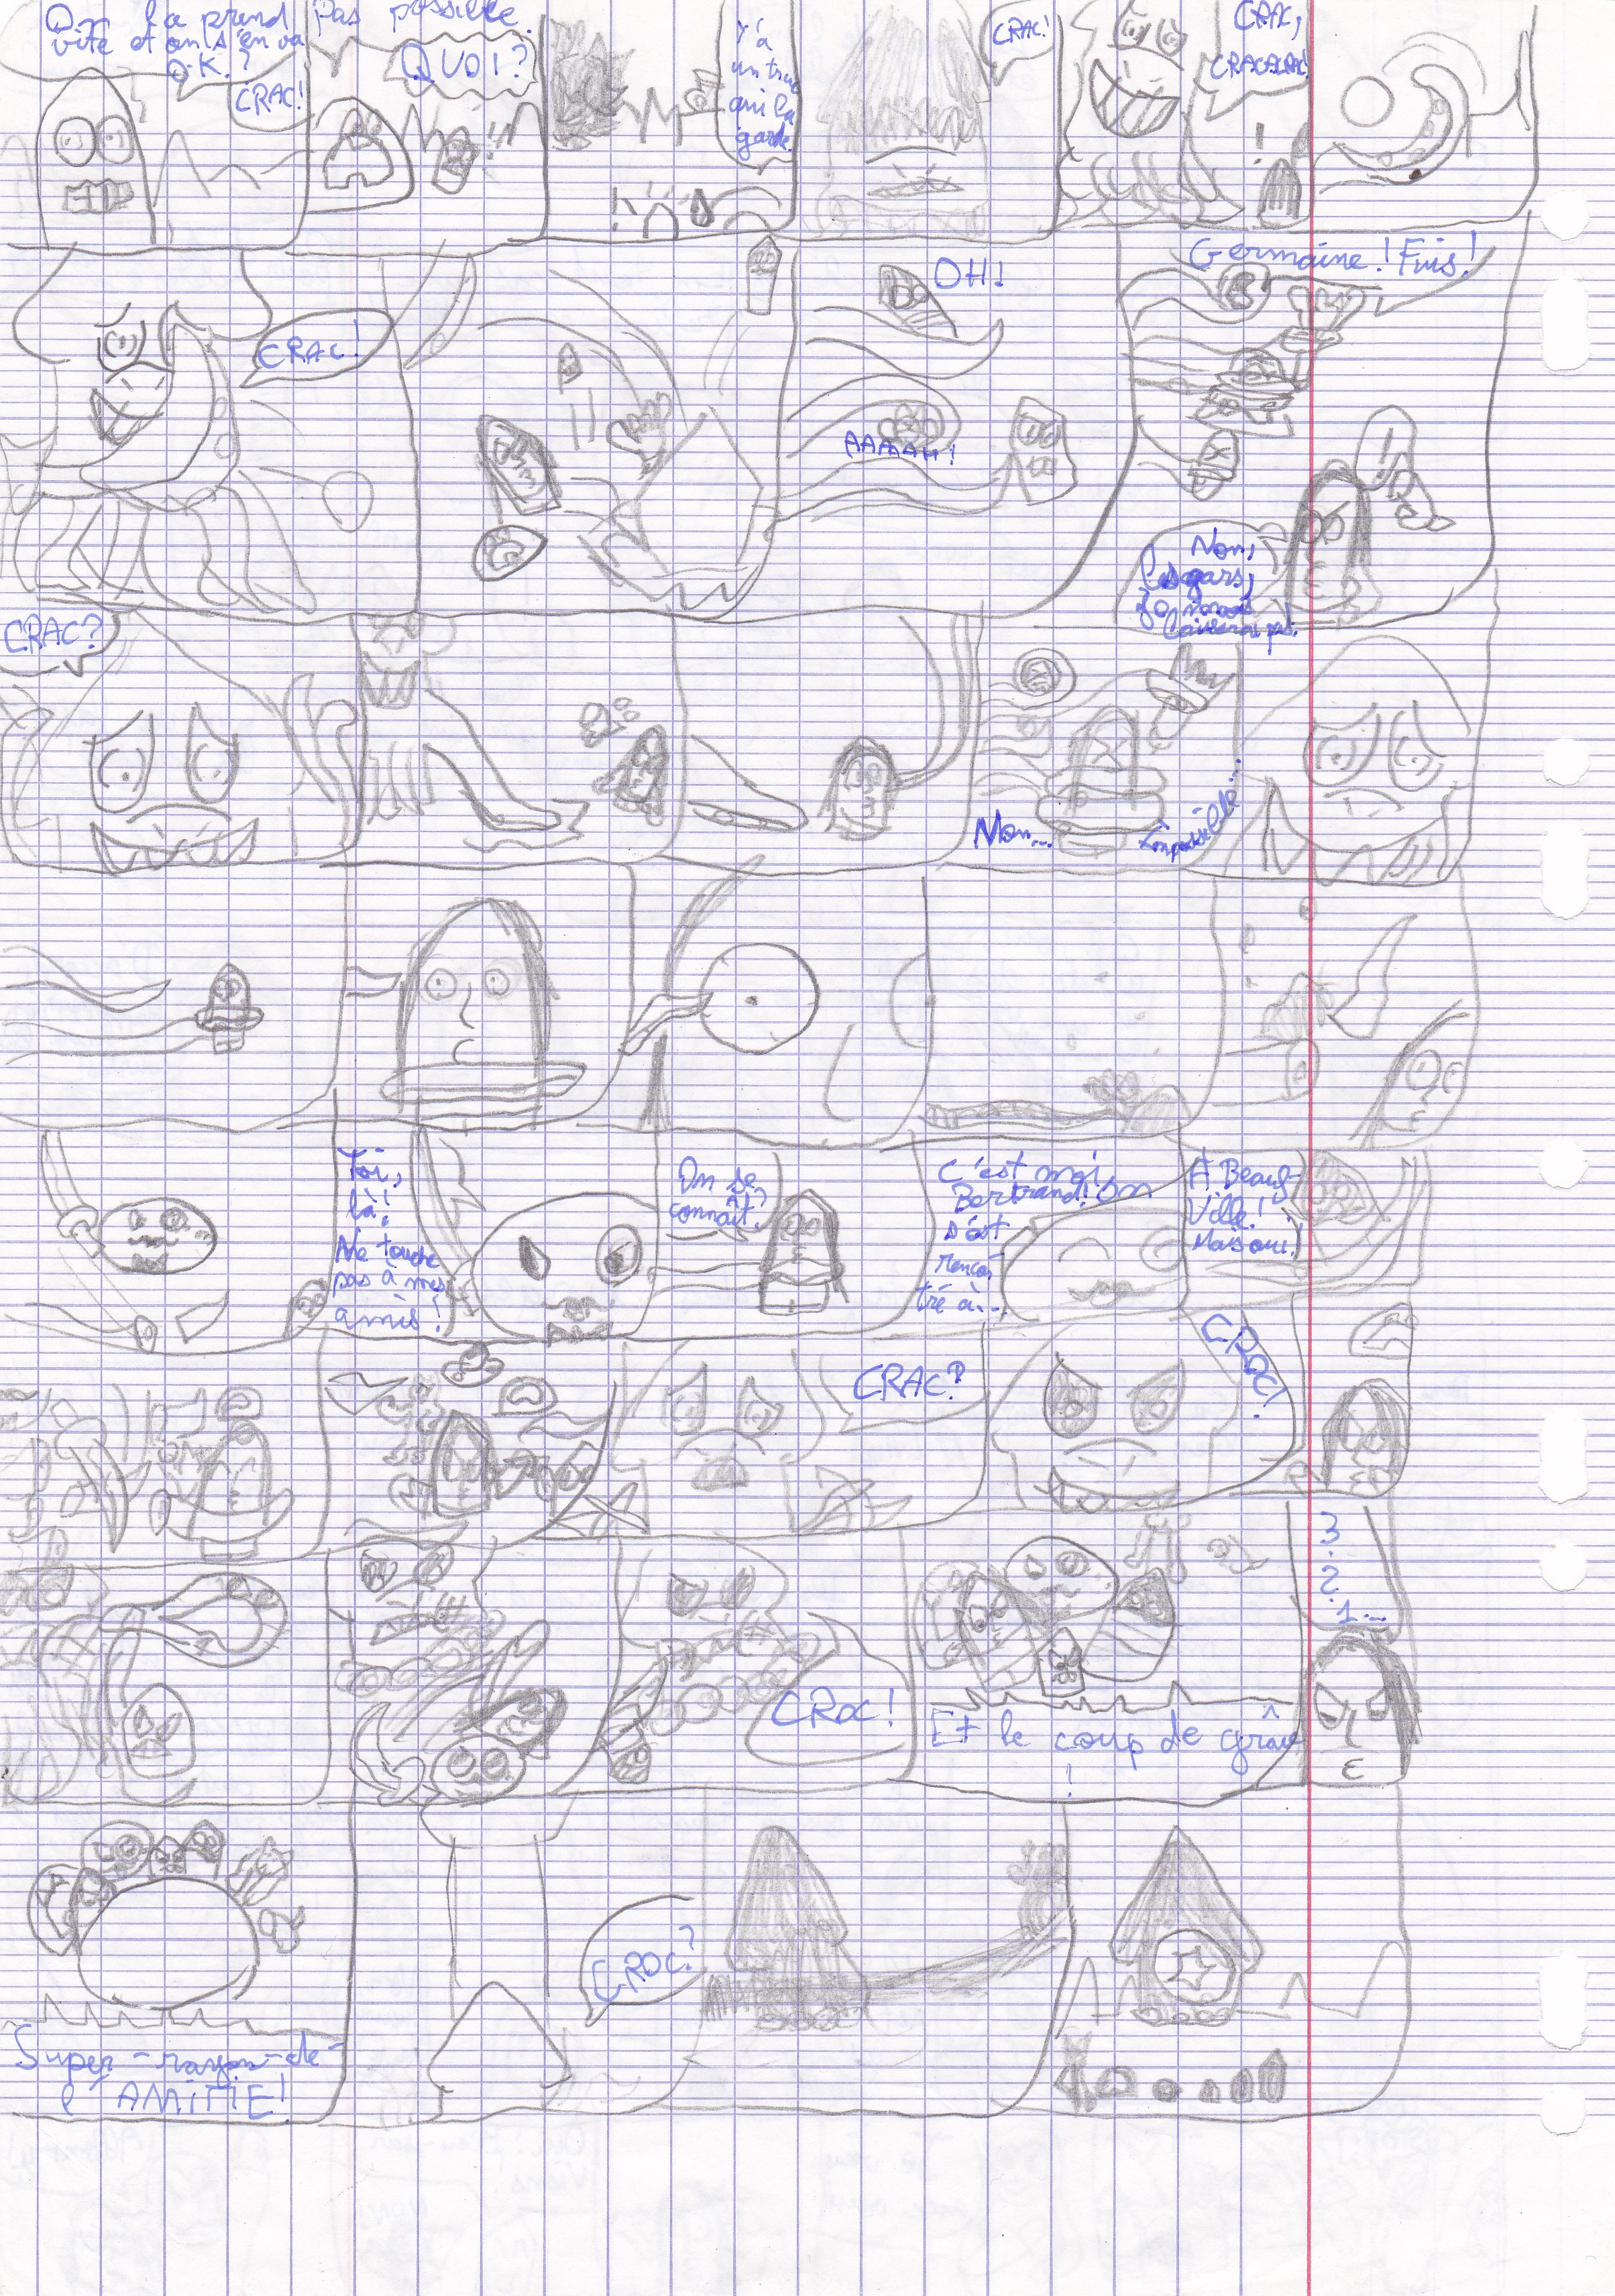 On la prend
vite et on s'en va
O.K.?
CRAC!
Pas possible.
QUOI?
Y'a
un truc
qui la
garde.
CRAC!
CRAC,
CRACACRAC!
CRAC!
OH!
AAAAAH!
Germaine! Fuis!
Non,
les gars,
je
vous
laisserai pas.
CRAC?
Non...
Impossible...
Toi,
là!
Ne touche
pas à mes
amis!
On se
connaît?
C'est moi,
Bertrand! On
s'est
rencon-
tré à...
À Beaug-
Ville!
Mais oui!
CRAC?
CROC!
CROC!
Et le coup de grâce
!
3
2
1...
Super-rayon-de-
l'AMITIE!
CROC?